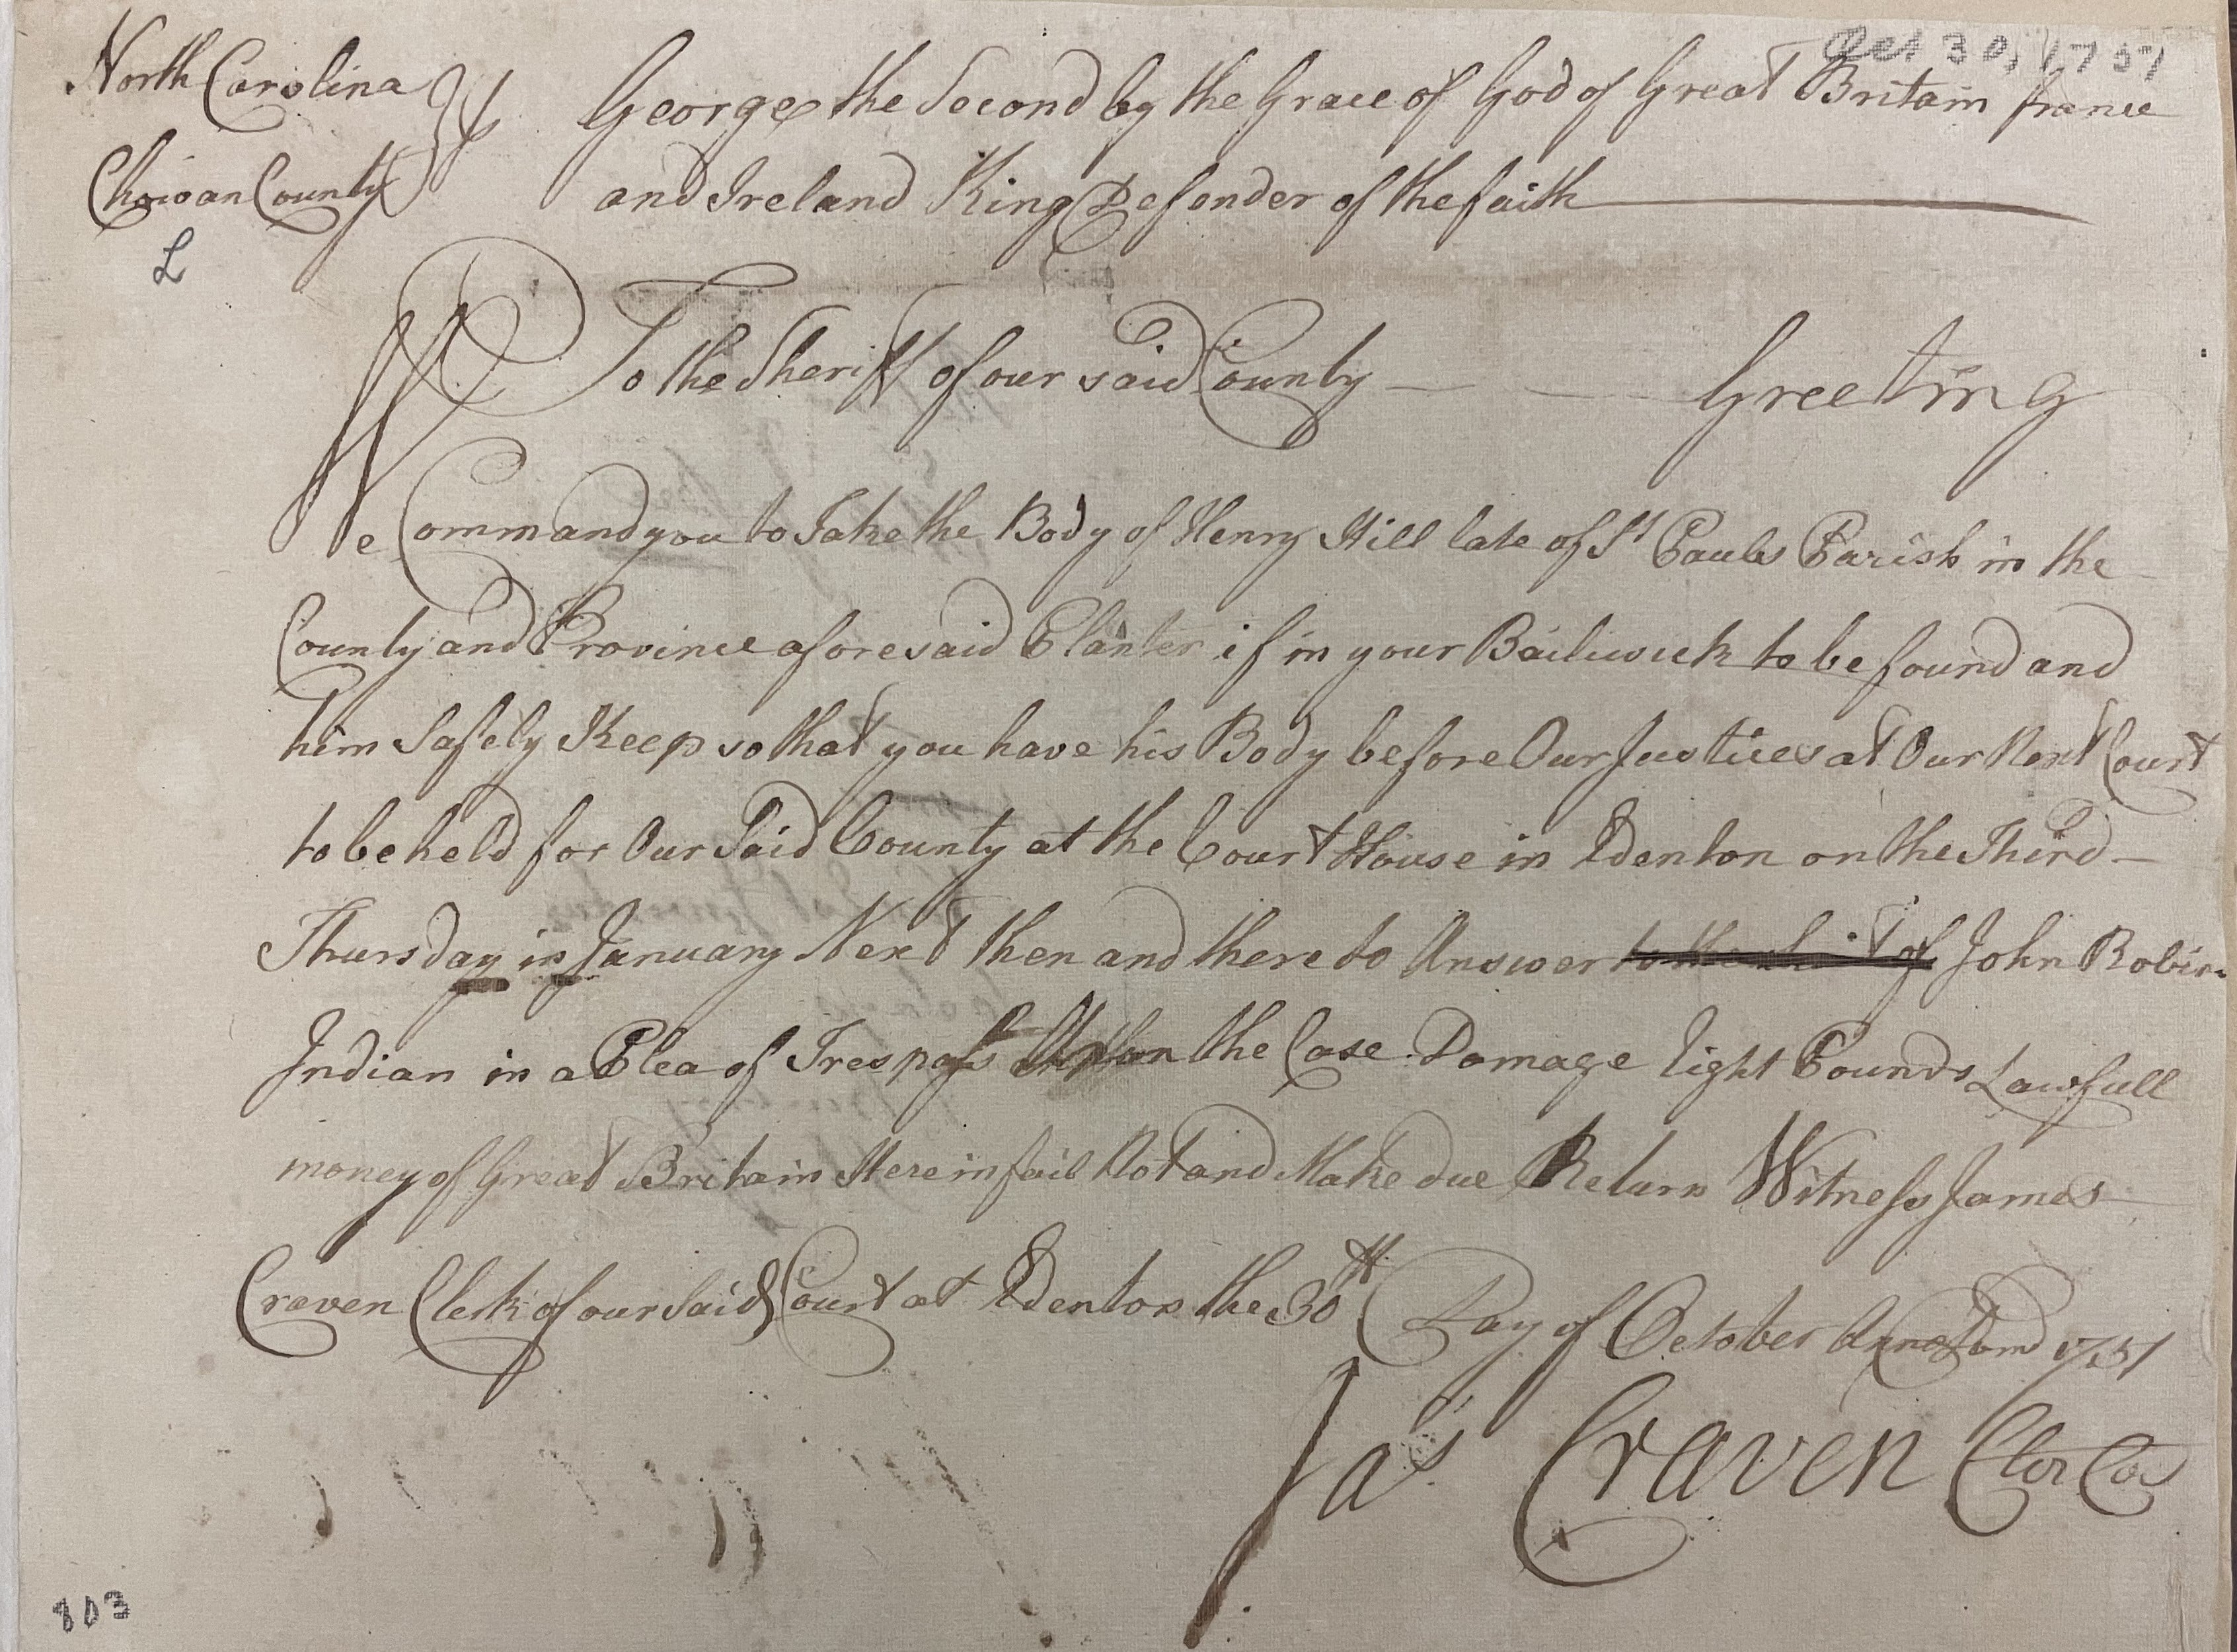 Oct 30, 1751
North Carolina
Chowan County
George the Second by the Grace of God of Great Britain france
and Ireland King Defender of the faith
L
To the Sheriff of our said County Greeting
We Command you to Take the Body of Henry Hill late of St Pauls Parish in the
County and Province aforesaid Planter if in your Bailiwick to be found and
him Safely Keep so that you have his Body before Our Justices at Our Next Court
to be held for Our Said County at the Court House in Edenton on the Third
Thursday in January Next then and there to Answer to the suit of John Robins
Indian in a Plea of Trespass Upon the Case Damage Eight Pounds Lawfull
money of Great Britain Herein fail Not and Make due Return Witness James
Craven Clerk of our Said Court at Edenton the 30th Day of October Anno Dom 1751
Jas Craven Cler Co
803